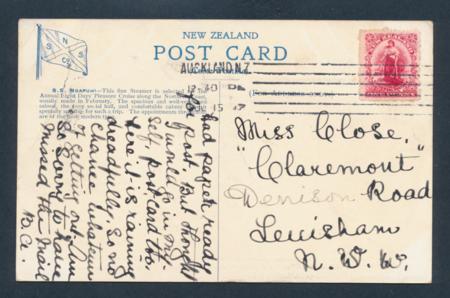 NEW ZEALAND
POST CARD
N
S S
Co
AUCKLAND. N.Z.
12 30 PM
15
S.S. NGAPUHI—This fine Steamer is selected for the
Annual Eight Days' Pleasure Cruise along the Northern Coast,
usually made in February. The spacious and well-ventilated
saloon, the cosy social hall, and comfortable cabins
specially for such a trip. The appointments throughout
are of the most modern type.
had paper ready
for post, but thought
I would go in my-
self. post card tho.
Here it is raining
dreadfully. So no
chance whatever
of getting out. Am
so sorry to have
missed the mail
Miss Close,
"Claremont"
Denison Road
Lewisham
N. S. W.